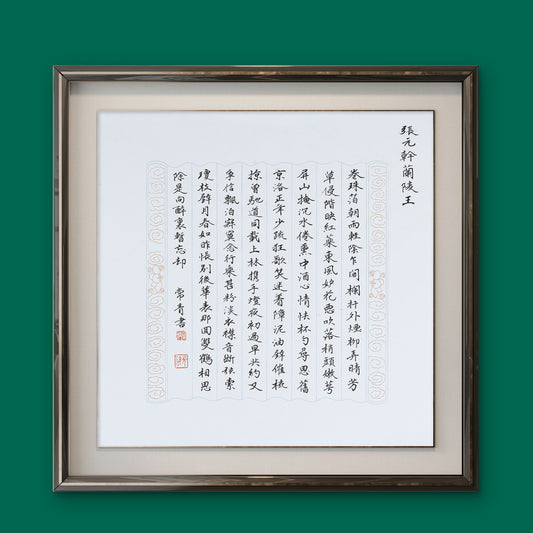 張元幹蘭陵王
捲珠箔朝雨輕陰乍閣欄杆外煙柳弄晴芳
草侵階映紅藥東風妒花惡吹落梢頭嫩萼
屏山掩沉水倦熏中酒心情怯杯勺尋思舊
京洛正年少疏狂歌笑迷着障泥油壁催梳
掠曾馳道同載上林携手燈夜初過早共約又
爭信飄泊寂寞念行樂甚粉淡衣襟音斷絃索
瓊枝璧月春如昨悵別後華表那回雙鶴相思
除是向醉裏暫忘却
常青書